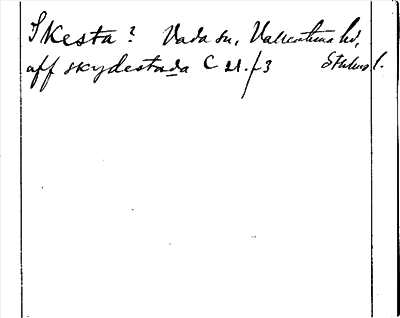 Skesta? Vada sn, Vallentuna hd,
aff skydestada C 21. f 3 Sthlms l.